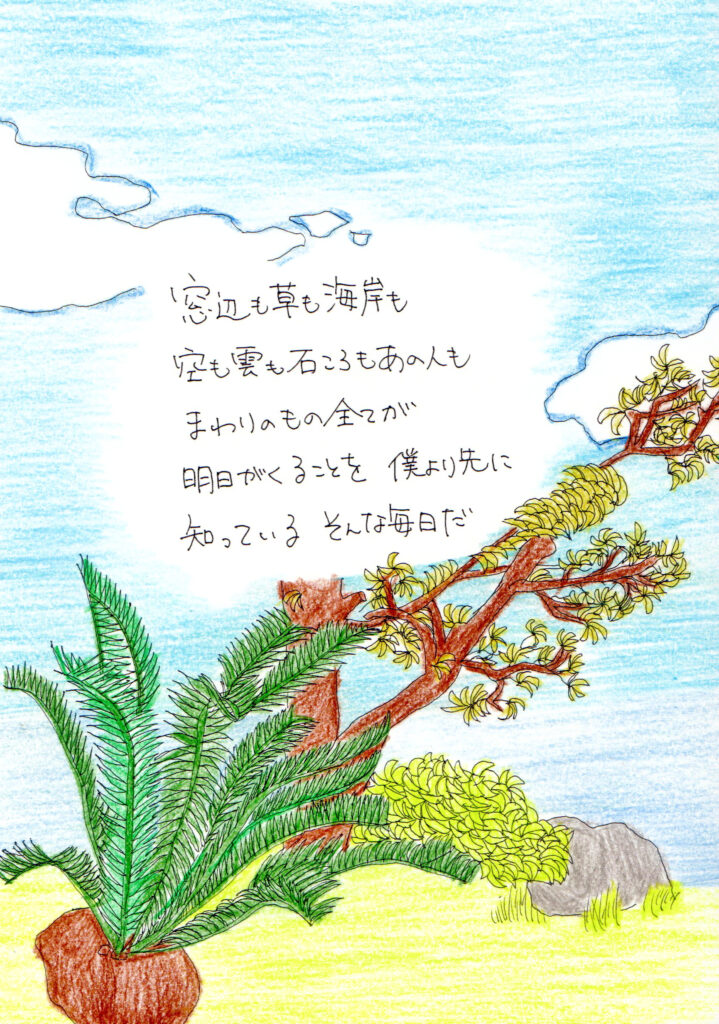 窓辺も草も海岸も
空も雲も石ころもあの人も
まわりのもの全てが
明日がくることを 僕より先に
知っている そんな毎日だ